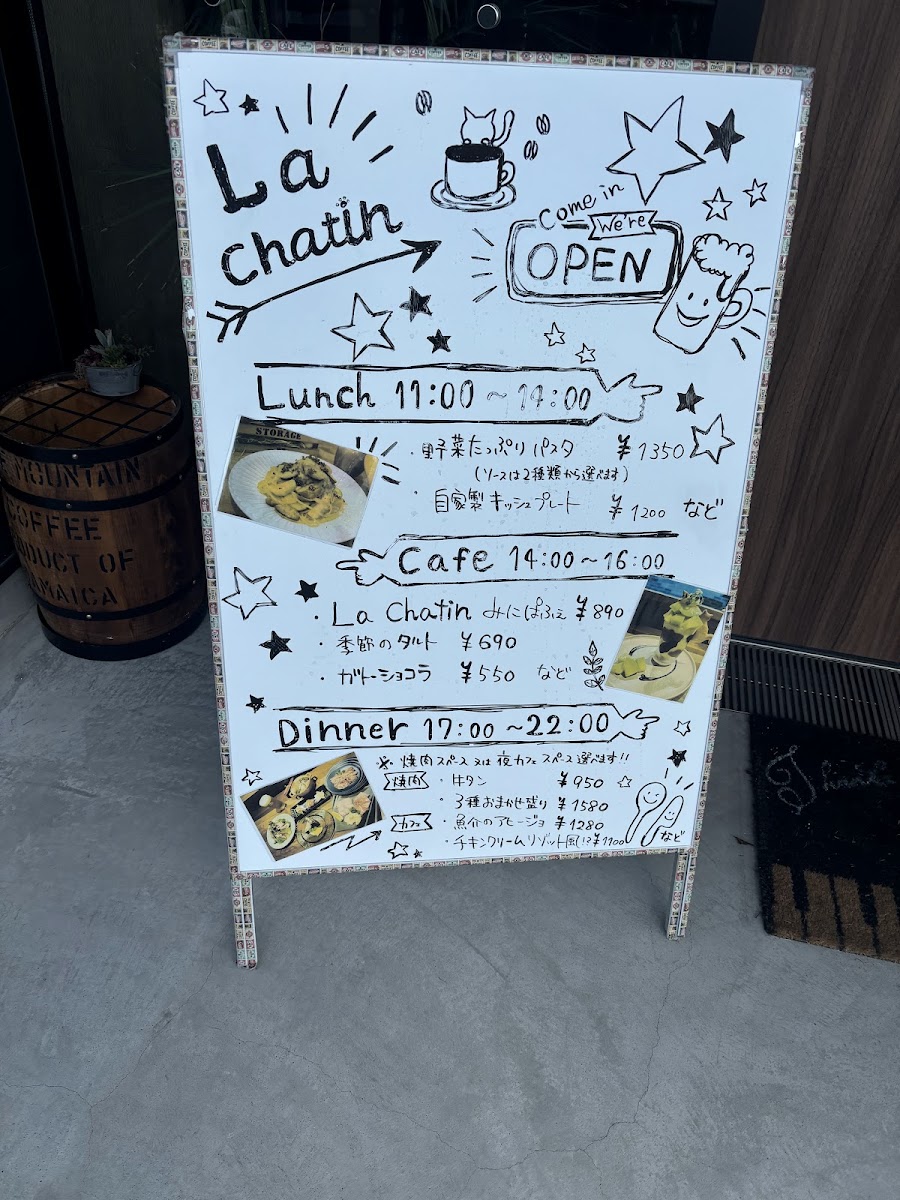 La
Chatin
Come in
We're
OPEN
Lunch 11:00 ~ 14:00
STORAGE
・野菜たっぷりパスタ ¥1350
(ソースは2種類から選べます)
・自家製キッシュプレート ¥1200 など
Cafe 14:00~16:00
・La Chatin みにぱふぇ ¥890
・季節のタルト ¥690
・ガトーショコラ ¥550 など
Dinner 17:00 ~22:00
※ 焼肉スペース 又は 夜カフェスペース選べます!!
焼肉 ・牛タン ¥950
・3種おまかせ盛り ¥1580
カフェ ・魚介のアヒージョ ¥1280
・チキンクリームリゾット風!? ¥1100 など
MOUNTAIN
COFFEE
PRODUCT OF
JAMAICA